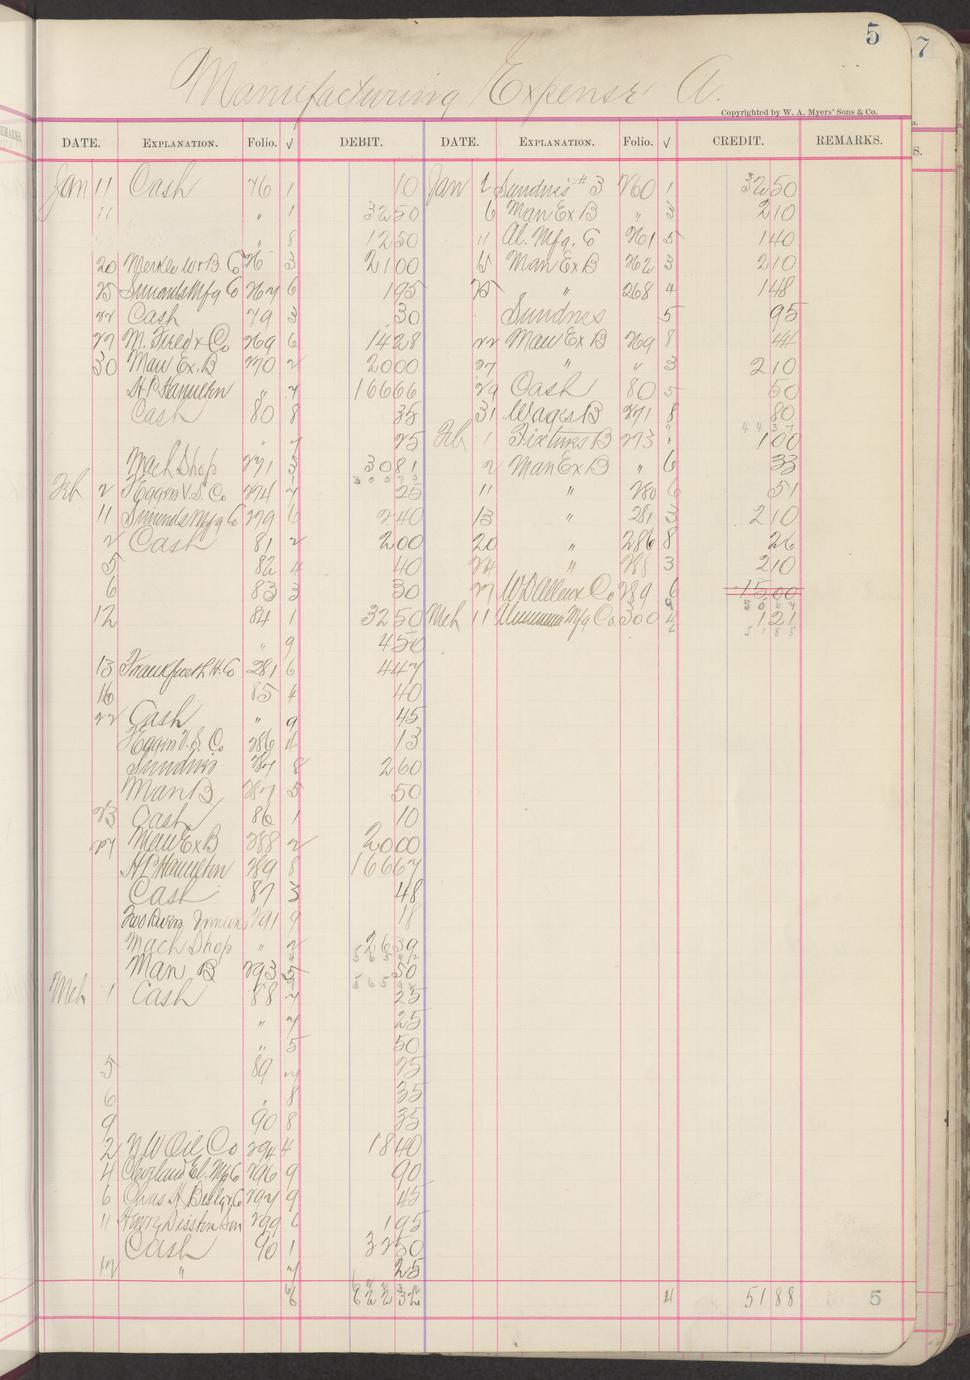 5
7
Manufacturing Expense A.
Copyrighted by W. A. Myers' Sons & Co.
DATE. EXPLANATION. Folio. √ DEBIT. DATE. EXPLANATION. Folio. √ CREDIT. REMARKS.
Jan 11 Cash 76 1 10 Jan 2 Sundries # 3 260 1 3250
11 " 1 3250 6 Man Ex B " 3 210
" 8 1250 11 Al. Mfg. Co 261 5 140
20 3 2100 15 Man Ex B 262 3 210
25 Simonds Mfg Co 267 6 195 25 " 268 4 148
22 Cash 79 3 30 Sundries 5 95
27 269 6 1428 22 Man Ex B 269 8 44
30 Man Ex. B 270 2 2000 27 " " 3 210
H P Hamilton " 7 16666 29 Cash 80 5 50
Cash 80 8 35 31 Wages B 271 8 80
" 7 25 Feb 1 Fixtures B 273 1 100
Mach Shop 271 5 3081 2 Man Ex B " 6 33
Feb 2 F Eggers V. S. Co 274 7 25 11 " 280 6 51
11 Simonds Mfg Co 279 6 240 13 " 281 3 210
2 Cash 81 2 200 20 " 286 8 26
5 82 4 40 24 " 288 3 210
6 83 3 30 27 W D Allen & Co 289 6 1500
12 84 1 3250 Mch 11 Aluminum Mfg Co 300 4 121
" 9 450
13 Frankfurth H. Co 281 6 447
16 85 4 40
22 Cash " 9 45
F Eggers V. S. Co 286 4 13
Sundries 287 8 260
Man B 287 5 50
23 Cash 86 1 10
27 Man Ex B 288 2 2000
H P Hamilton 289 8 16667
Cash 87 3 48
291 9 18
Mach Shop " 2 2639
Man B 293 5 50
Mch 1 Cash 88 7 25
" 7 25
" 5 50
5 89 7 25
6 " 8 35
9 90 8 35
2 N W Oil Co 294 4 1840
4 Cleveland El. Mfg Co 296 9 90
6 Chas H Besly & Co 297 9 45
11 Henry Disston Son 299 6 195
Cash 90 1 3250
12 " 7 25
6 82232 4 5188 5